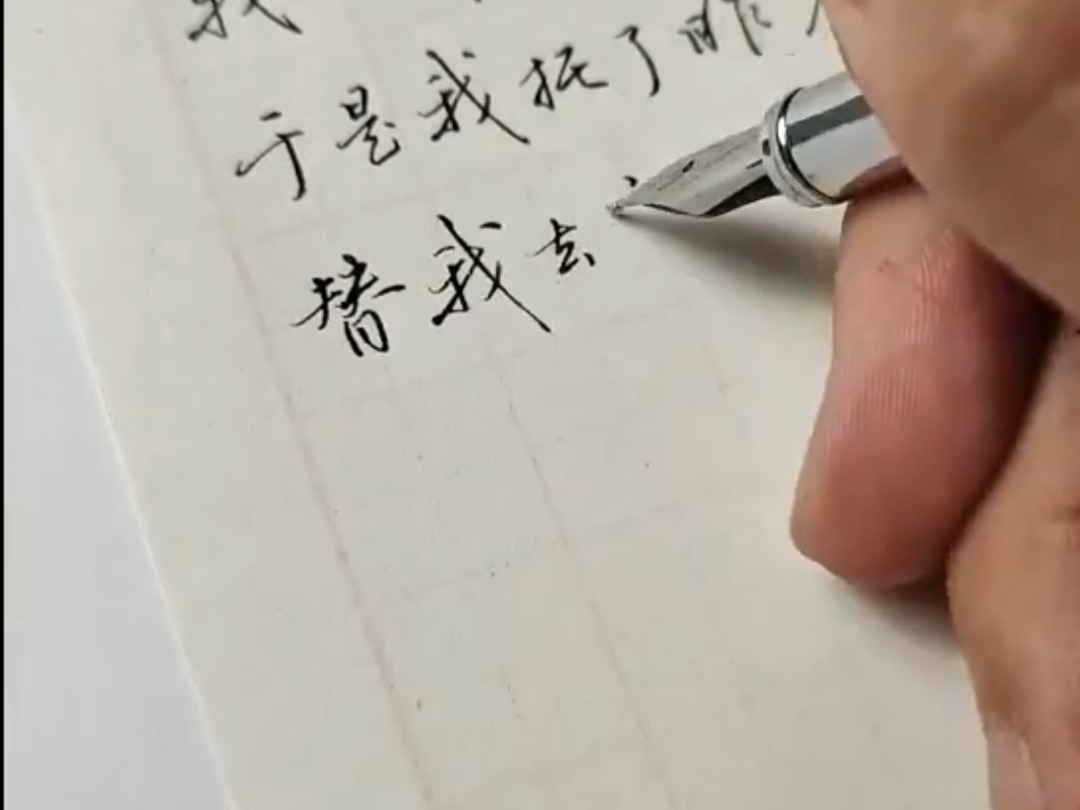 我
于是我托了昨
替我去